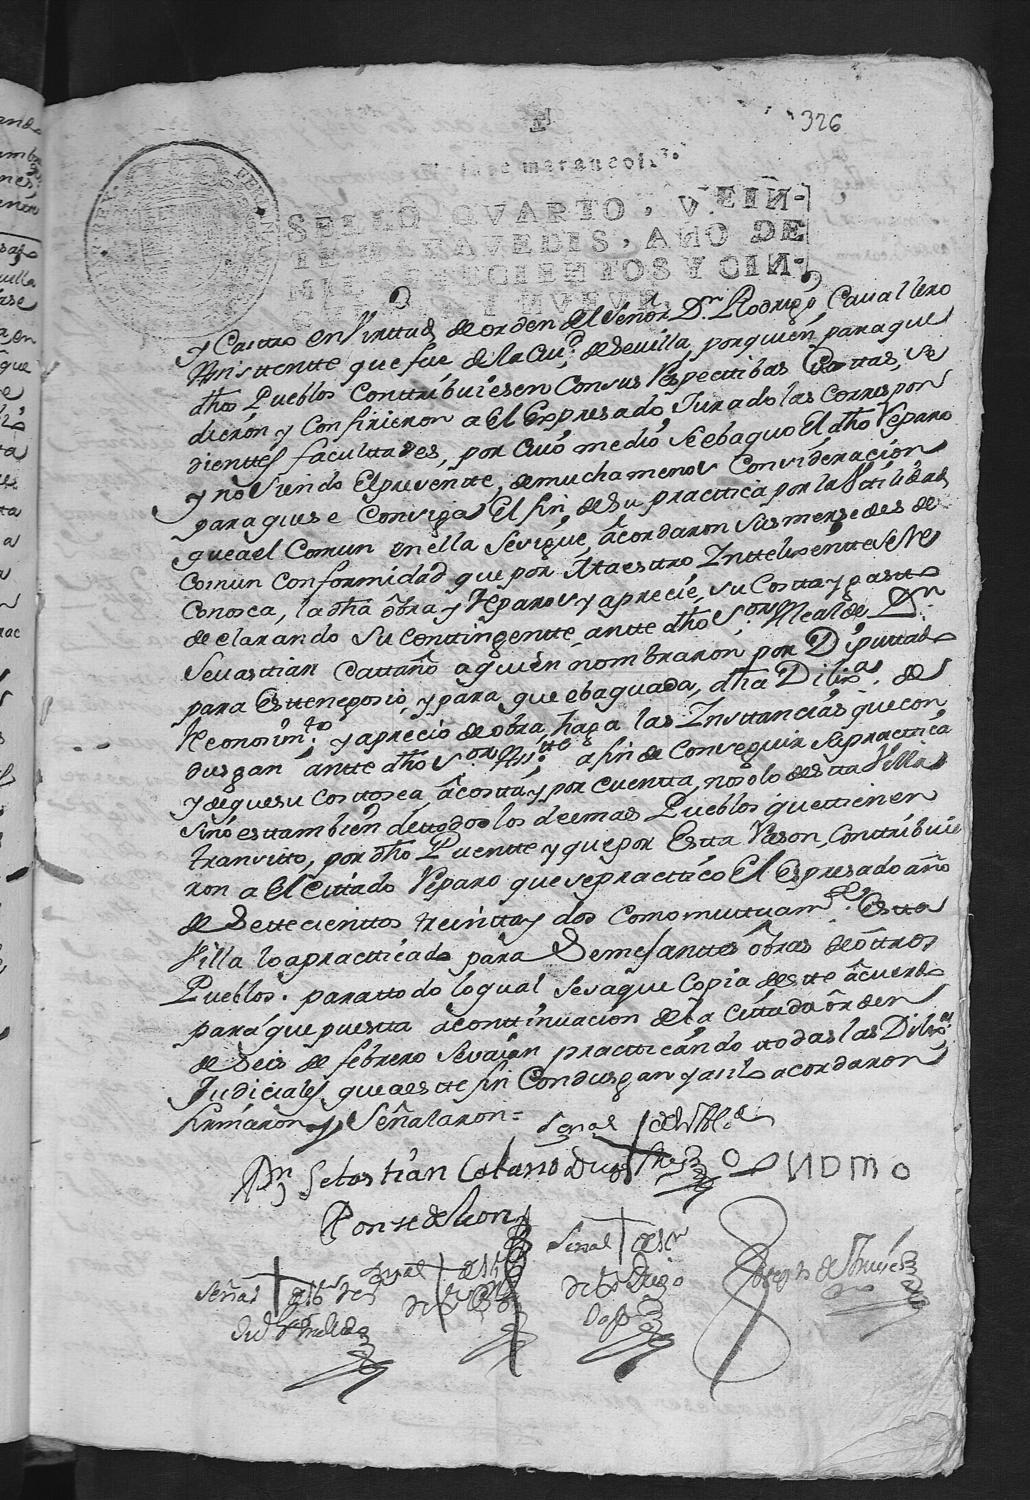 326
SELLO QVARTO, VEIN-
TE MARAVEDIS, AÑO DE
MIL SETECIENTOS Y CIN-
y Castro en virttud de orden del Señor Dn. Rodrigo Cavallero
Asistentte que fue de la Ciud. de Sevilla, por quien para que
dhos Pueblos Conttribuiesen Con sus Respecttibas Quottas, se
dieron y Confirieron a El Expresado Jurado las correspon
dienttes facultades, por cuio medio se ebaquo El dho Reparo
y no siendo El presentte, de mucha menor Consideración
para que se Consiga El fin, de su practtica por la Uttilidad
que a el Comun en ella se sigue, acordaron sus mersedes de
comun conformidad que por Maestro Intteligentte se Re
Conosca, la dha obra y Reparos y aprecie, su Costta y gastto
declarando su Conttingentte antte dho Sor. Alcalde Dn.
Sevasttian Cattaño a quien nombraron por Diputtado
para Estte negosio, y para que ebaquada, dha Dilixa. de
Reconosimto. y aprecio de obra, haga las Insttancias que con
dusgan antte dho Sor. Asistte. a fin de Conseguir se practtica
y de que su costto sea a costta y por cuentta, no solo de estta Villa
sino es ttambien de ttodos los demas Pueblos que ttienen
transitto, por dho Puentte y que por Estta Rason, Conttribuie
ron a El Cittado Reparo que se practtico El Expresado año
de Settecienttos treintta y dos como muttuamte. Estta
Villa lo a practticado para Semejanttes obras de ottros
Pueblos. para ttodo lo qual se saque Copia de estte acuerdo
para que puestta a conttinuacion de la Cittada orden
de Seis de febrero se vaian practticando ttodas las Dilixas.
Judiciales que a estte fin Condusgan y asi lo acordaron
firmaron y Señalaron =
Dn Sebastian Cataño
Ponse de Leon
Señal
Señal
Señal